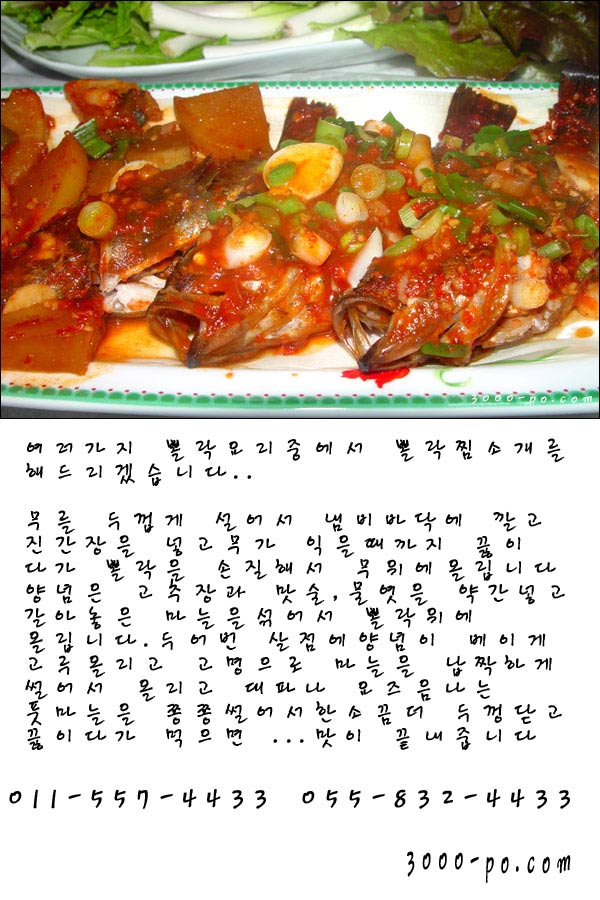 3000-po.com
여러가지 뽈락요리중에서 뽈락찜소개를
해드리겠습니다..
무를 두껍게 설어서 냄비바닥에 깔고
진간장을 넣고무가 익을때까지 끓이
다가 뽈락을 손질해서 무위에올립니다
양념은 고추장과 맛술,물엿을 약간넣고
갈아놓은 마늘을섞어서 뽈락위에
올립니다.두어번 살점에양념이 베이게
고루올리고 고명으로 마늘을 납짝하게
썰어서 올리고 대파나 요즈음나는
풋마늘을 쫑쫑썰어서한소끔더 두껑닫고
끓이다가 먹으면 ...맛이 끝내줍니다
011-557-4433 055-832-4433
3000-po.com